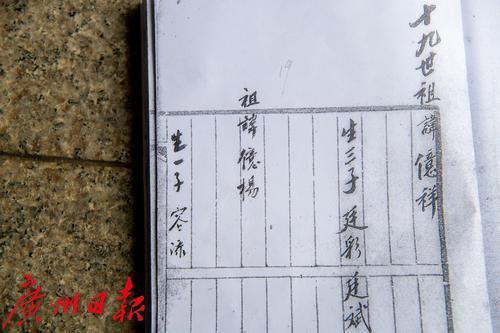 十九世祖諱億祥
生三子 廷彩 廷斌
祖諱億楊
生一子 容添
19
廣州日報